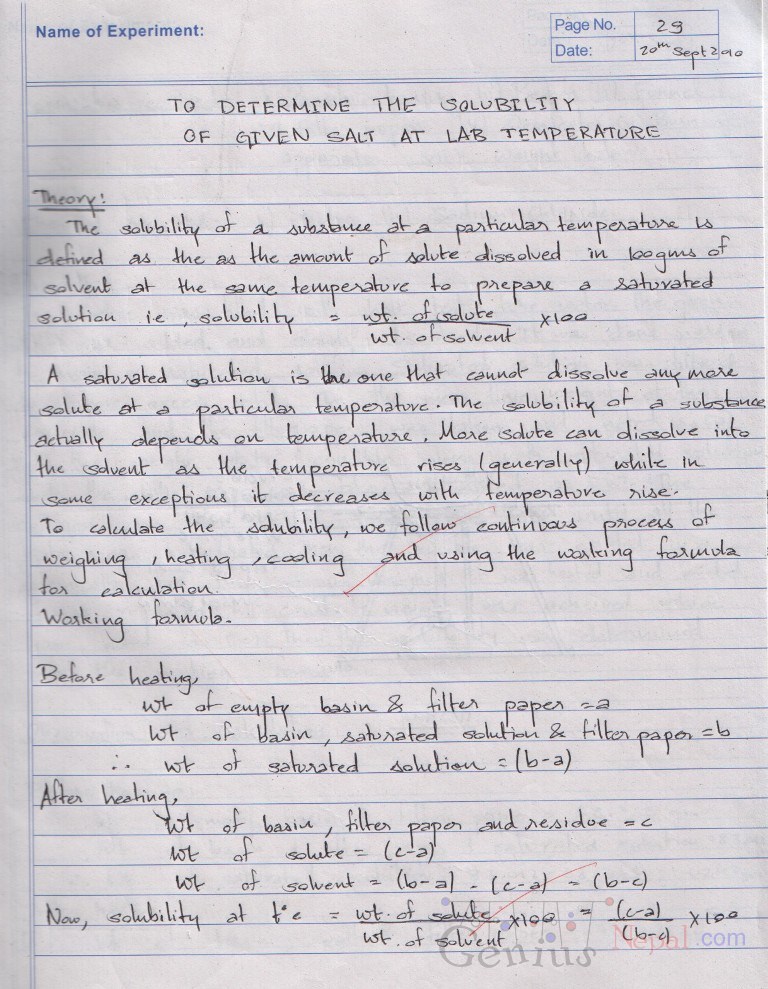 Name of Experiment:
Page No. 29
Date: 20th Sept 2010
TO DETERMINE THE SOLUBILITY
OF GIVEN SALT AT LAB TEMPERATURE
Theory:
The solubility of a substance at a particular temperature is
defined as the as the amount of solute dissolved in 100gms of
solvent at the same temperature to prepare a saturated
solution ie, solubility = wt. of solute / wt. of solvent ×100
A saturated solution is the one that cannot dissolve any more
solute at a particular temperature. The solubility of a substance
actually depends on temperature. More solute can dissolve into
the solvent as the temperature rises (generally) while in
some exceptions it decreases with temperature rise.
To calculate the solubility, we follow continuous process of
weighing, heating, cooling and using the working formula
for calculation.
Working formula.
Before heating,
wt of empty basin & filter paper = a
wt of basin, saturated solution & filter paper = b
∴ wt of saturated solution = (b-a)
After heating,
wt of basin, filter paper and residue = c
wt of solute = (c-a)
wt. of solvent = (b-a) - (c-a) = (b-c)
Now, solubility at t°c = wt. of solute / wt. of solvent ×100 = (c-a) / (b-c) ×100
Genius Nepal.com